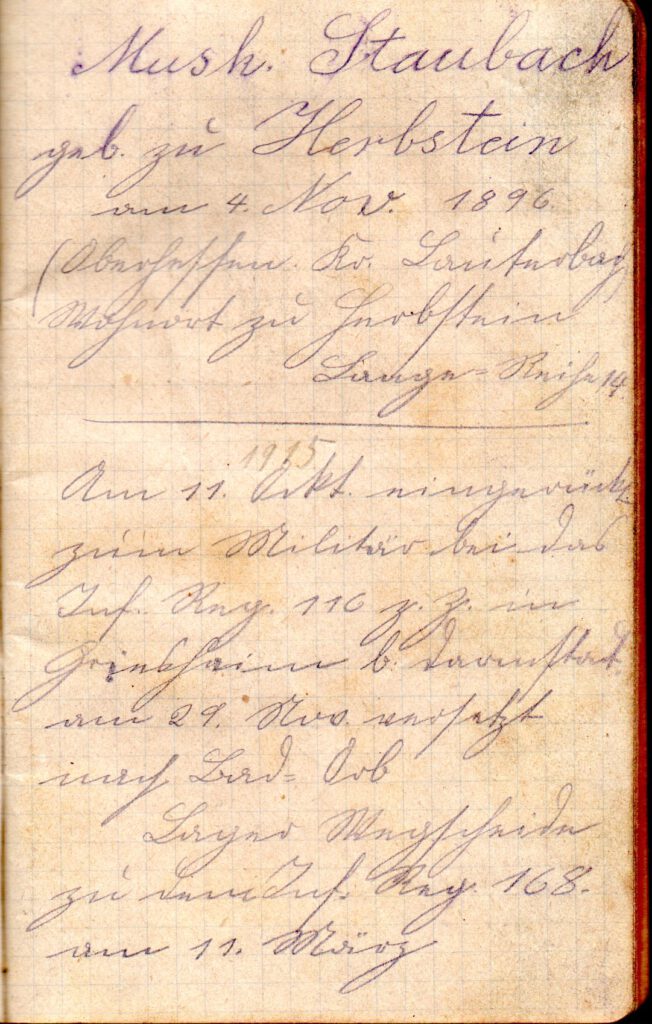 Musk. Staubach
geb. zu Herbstein
am 4. Nov. 1896.
(Oberhessen. Kr. Lauterbach)
Wohnort zu Herbstein
Lange-Reihe 14.
1915
Am 11. Okt. eingerückt
zum Militär bei das
Inf. Reg. 116 z. Z. in
Griesheim b. Darmstat.
am 29. Nov. versetzt
nach Bad-Orb
Lager Wegscheide
zu dem Inf. Reg. 168.
am 11. März